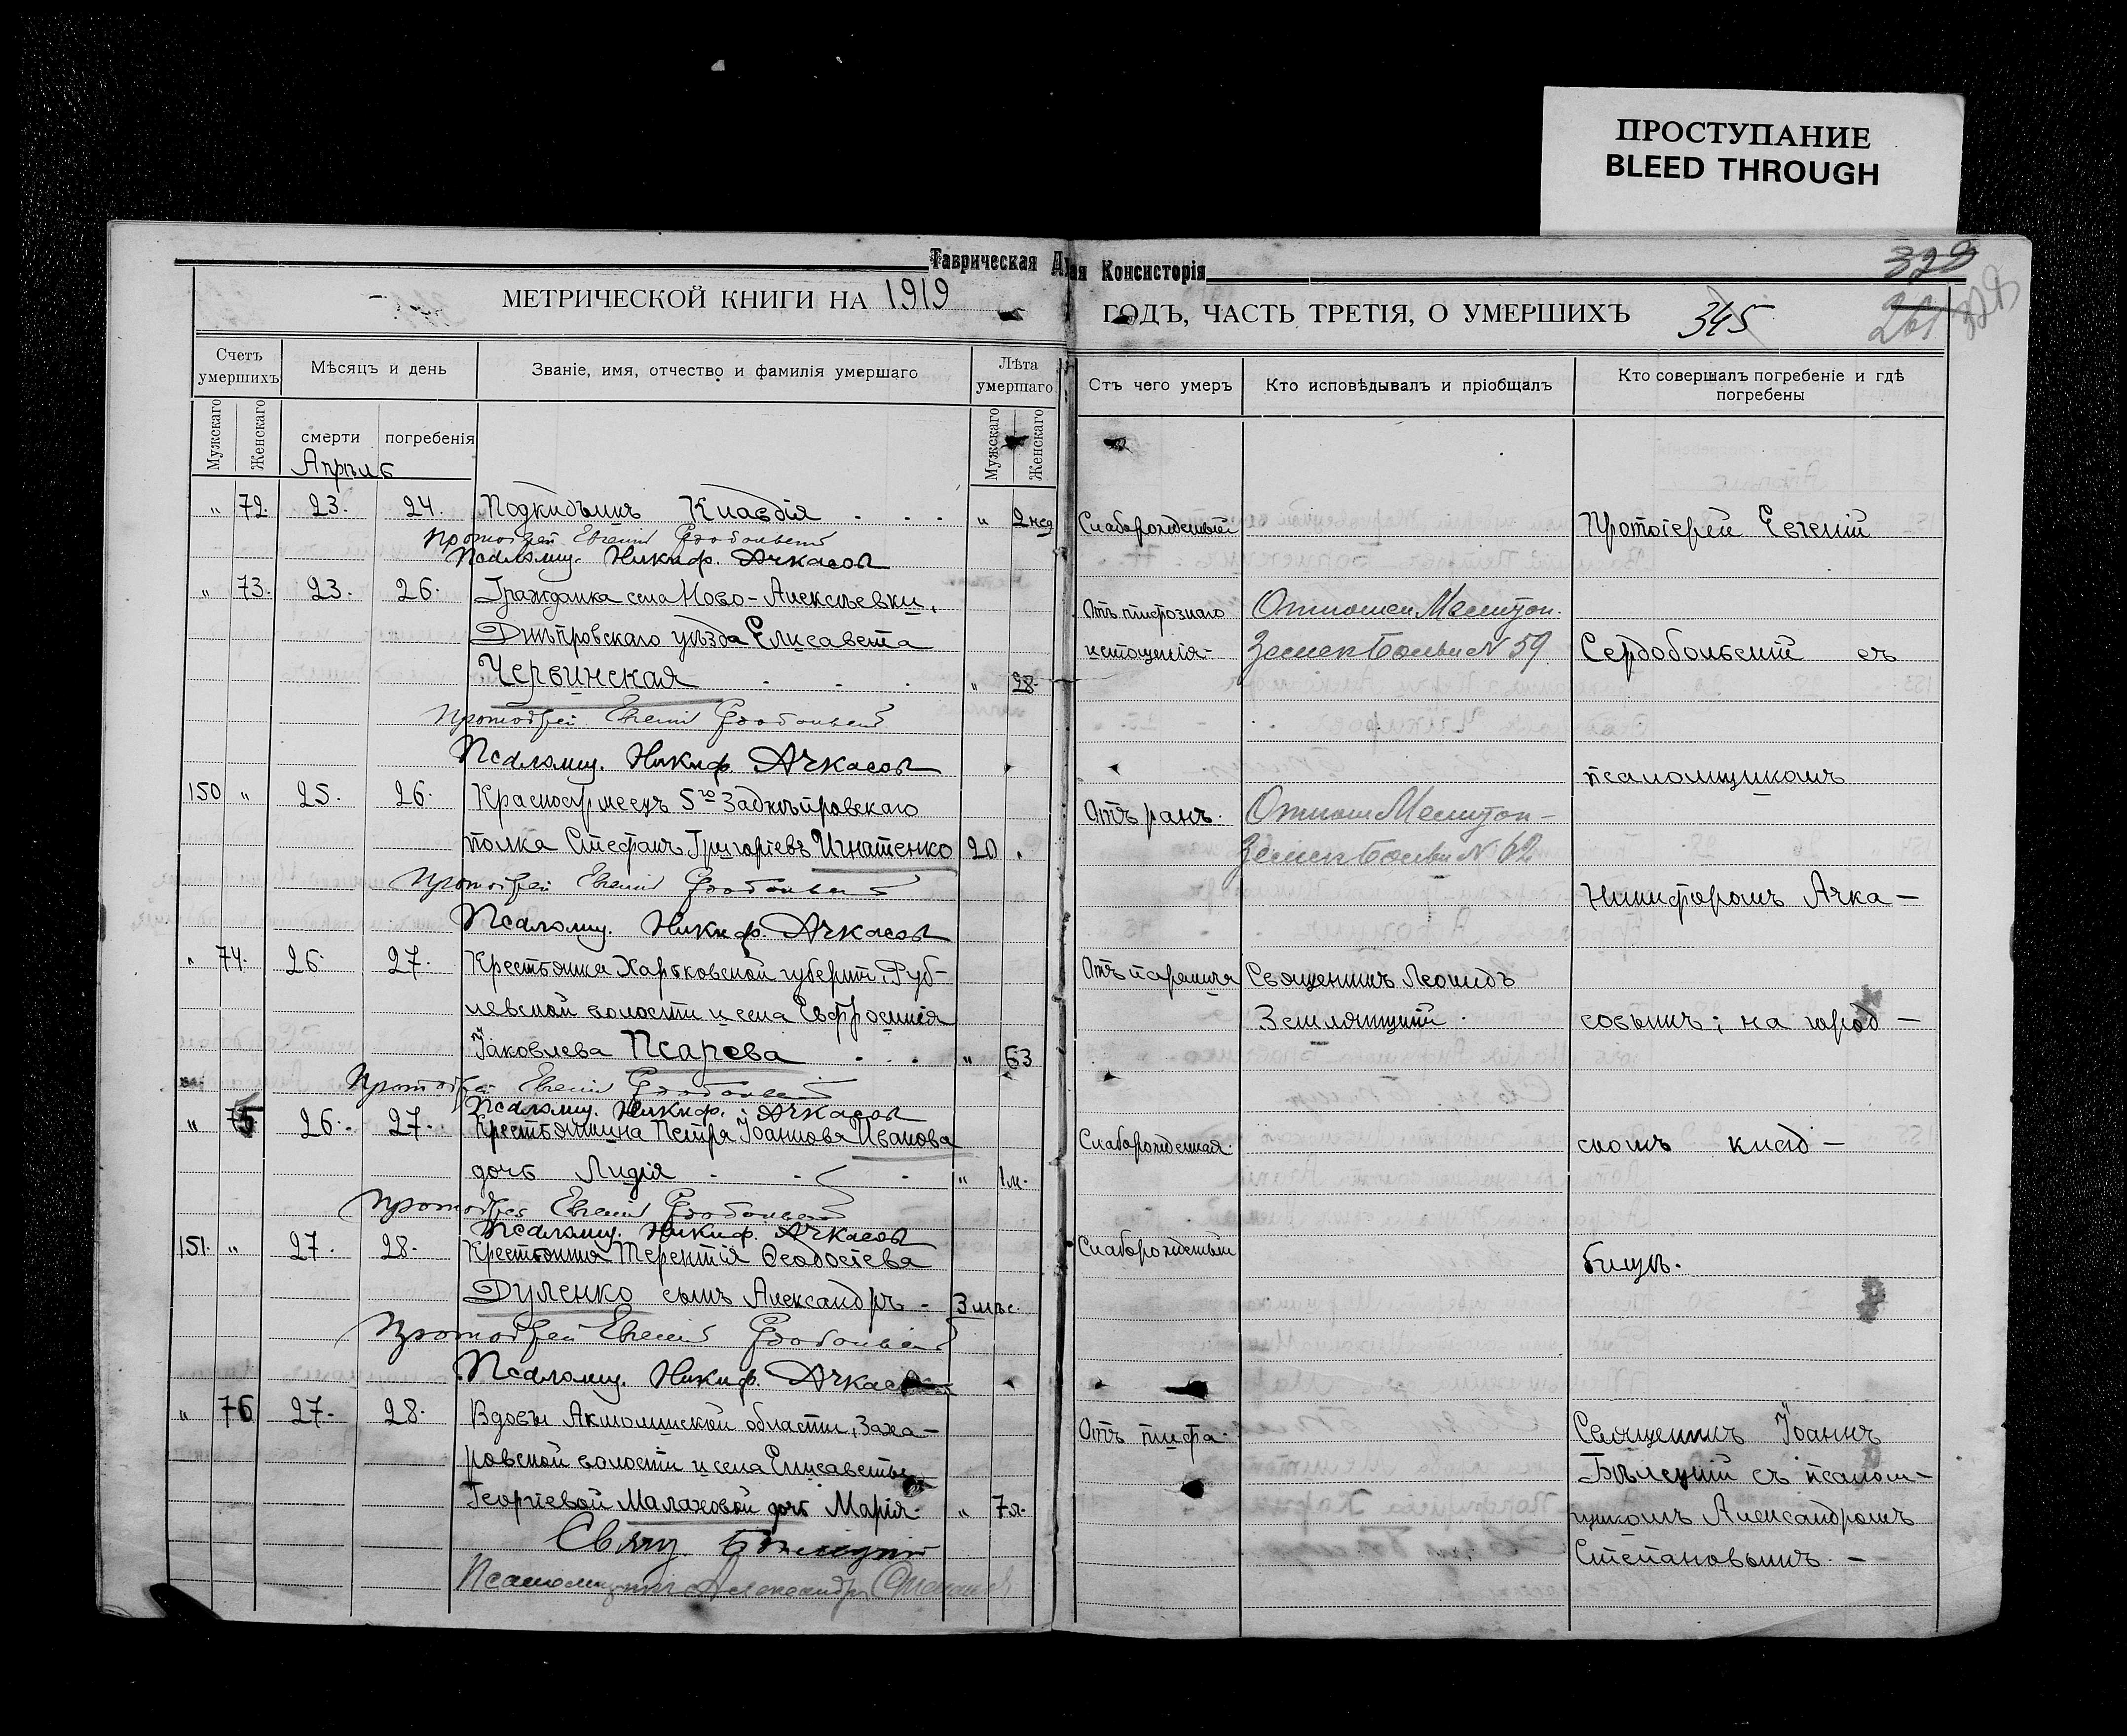 ПРОСТУПАНИЕ
BLEED THROUGH
Таврическая Д
ая Консисторія
329
МЕТРИЧЕСКОЙ КНИГИ НА 1919
ГОДЪ, ЧАСТЬ ТРЕТІЯ, О УМЕРШИХЪ 345
261
Счетъ умершихъ
Мѣсяцъ и день
Званіе, имя, отчество и фамилія умершаго
Лѣта умершаго
Стъ чего умеръ
Кто исповѣдывалъ и пріобщалъ
Кто совершалъ погребеніе и гдѣ
погребены
Мужскаго
Женскаго
смерти
погребенія
Мужскаго
Женскаго
Апрѣль
" 72. 23. 24. Подкидышъ Клавдія . . . " 2 нед Слаборожденный Протоіерей Евгеній
Протоіерей Евгеній Сердобольскій
Псаломщ. Никиф. Ачкасов
" 73. 23. 26. Гражданка села Ново-Алексѣевки, Отъ тифознаго Отношен.
Днѣпровскаго уѣзда Елисавета истощенія Земск больн N 59 Сердобольскій съ
Червинская . . . " 28.
Протоіерей Евгеній Сердобольскій
Псаломщ. Никиф. Ачкасов псаломщикомъ
150 " 25. 26. Красноармеецъ 5го Заднѣпровскаго Отъ ранъ. Отнош
полка Стефанъ Григоріевъ Игнатенко 20 " Земск больн N 62
Протоіерей Евгеній Сердобольскій Никифоромъ Ачка-
Псаломщ. Никиф. Ачкасов
" 74. 26. 27. Крестьянка Харьковской губерніи, Руб- Отъ паралича Священникъ Леонидъ
левской волости и села Евфросинія Земляницкій. совымъ; на город-
Іаковлева Псарева . . . " 63
Протоіерей Евгеній Сердобольскій
Псаломщ. Никиф. Ачкасов
" 75 26. 27. Крестьянина Петра Іоаннова Иванова Слаборожденная скомъ клад-
дочь Лидія . . . " 1м.
Протоіерей Евгеній Сердобольскій
Псаломщ. Никиф. Ачкасов
151. " 27. 28. Крестьянина Терентія Ѳеодосіева Слаборожденный бищѣ.
Дуленко сынъ Александръ - 3 мѣс.
Протоіерей Евгеній Сердобольскій
Псаломщ. Никиф. Ачкасов
" 76 27. 28. Вдовы Акмолинской области, Заха- Отъ тифа. Священникъ Іоаннъ
ровской волости и села Елисаветы Бѣлецкій съ псалом-
Георгіевой Малаховой дочь Марія. " 7л. щикомъ Александромъ
Свящ. Бѣлецкій Степановымъ. -
Псаломщикъ Александръ Степанов